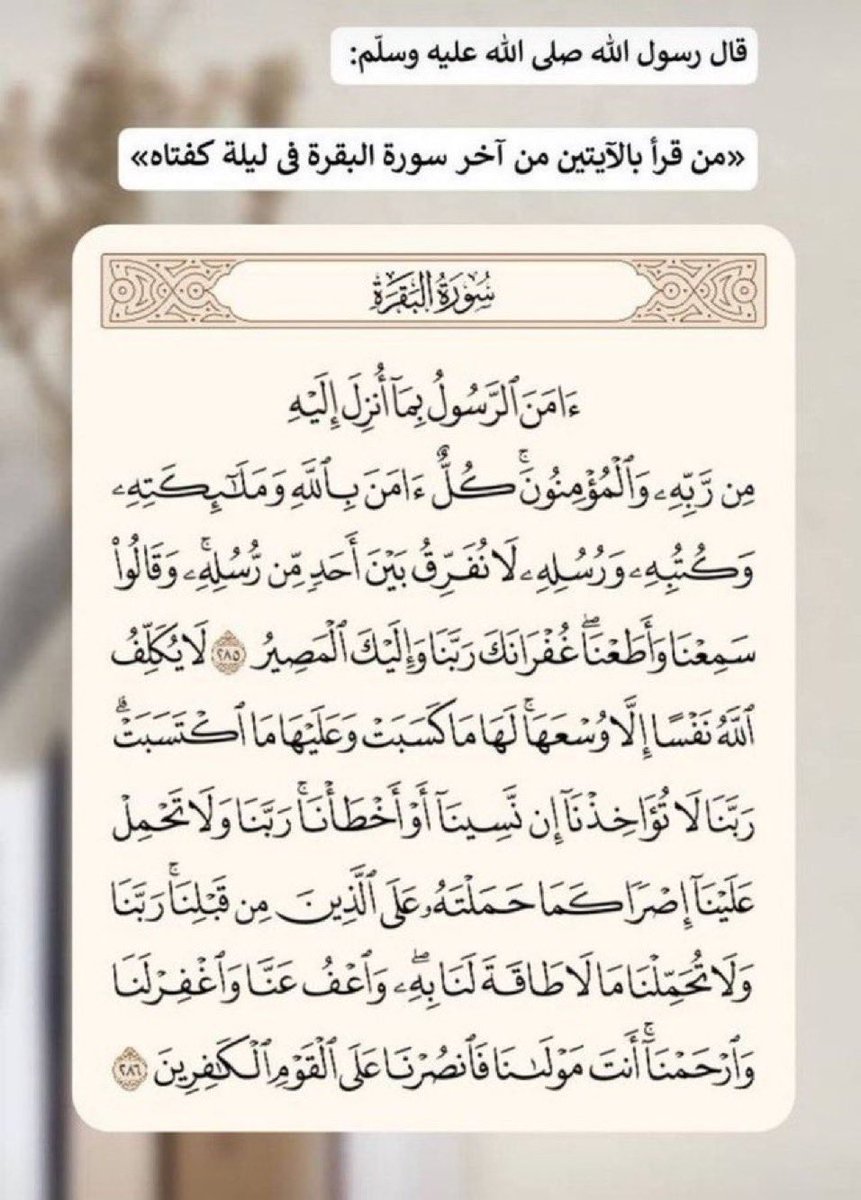 قال رسول الله صلى الله عليه وسلّم:
«من قرأ بالآيتين من آخر سورة البقرة فى ليلة كفتاه»
سُورَةُ البَقَرَةِ
ءَامَنَ ٱلرَّسُولُ بِمَآ أُنزِلَ إِلَيْهِ
مِن رَّبِّهِۦ وَٱلْمُؤْمِنُونَۚ كُلٌّ ءَامَنَ بِٱللَّهِ وَمَلَـٰٓئِكَتِهِۦ
وَكُتُبِهِۦ وَرُسُلِهِۦ لَا نُفَرِّقُ بَيْنَ أَحَدٍ مِّن رُّسُلِهِۦۚ وَقَالُوا۟
سَمِعْنَا وَأَطَعْنَاۖ غُفْرَانَكَ رَبَّنَا وَإِلَيْكَ ٱلْمَصِيرُ ٢٨٥ لَا يُكَلِّفُ
ٱللَّهُ نَفْسًا إِلَّا وُسْعَهَاۚ لَهَا مَا كَسَبَتْ وَعَلَيْهَا مَا ٱكْتَسَبَتْۗ
رَبَّنَا لَا تُؤَاخِذْنَآ إِن نَّسِينَآ أَوْ أَخْطَأْنَاۚ رَبَّنَا وَلَا تَحْمِلْ
عَلَيْنَآ إِصْرًا كَمَا حَمَلْتَهُۥ عَلَى ٱلَّذِينَ مِن قَبْلِنَاۚ رَبَّنَا
وَلَا تُحَمِّلْنَا مَا لَا طَاقَةَ لَنَا بِهِۦۖ وَٱعْفُ عَنَّا وَٱغْفِرْ لَنَا
وَٱرْحَمْنَآۚ أَنتَ مَوْلَىٰنَا فَٱنصُرْنَا عَلَى ٱلْقَوْمِ ٱلْكَـٰفِرِينَ ٢٨٦